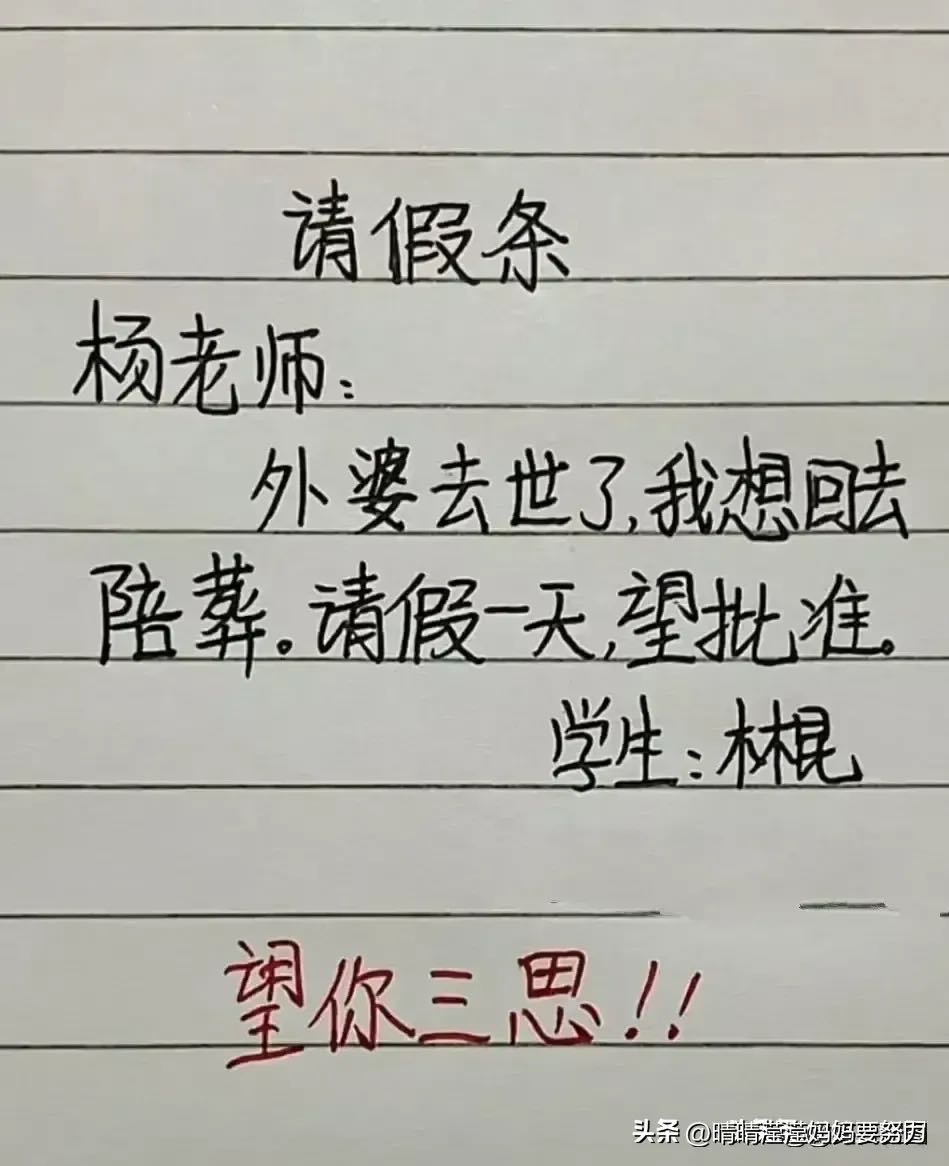 请假条
杨老师：
外婆去世了,我想回去
陪葬。请假一天,望批准。
学生：林棍
望你三思!!
头条 @晴晴滢滢妈妈要努力